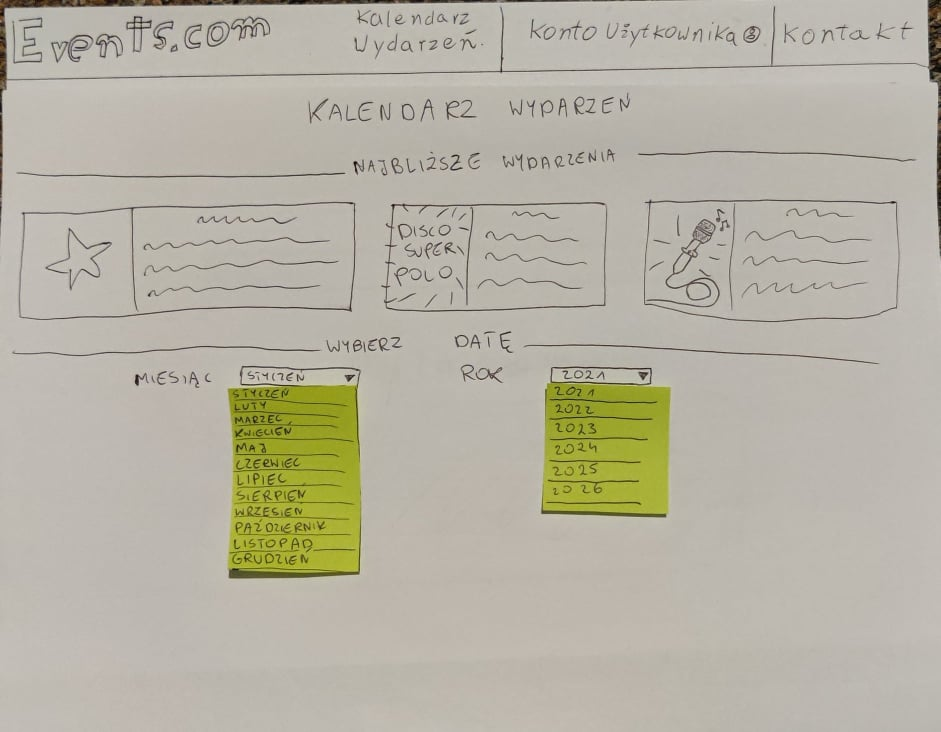 Events.com
Kalendarz
Wydarzeń.
Konto Użytkownika
Kontakt
KALENDARZ WYDARZEŃ
NAJBLIŻSZE WYDARZENIA
DISCO
SUPER
POLO
WYBIERZ DATĘ
MIESIĄC STYCZEŃ
ROK 2021
STYCZEŃ
LUTY
MARZEC
KWIECIEŃ
MAJ
CZERWIEC
LIPIEC
SIERPIEŃ
WRZESIEŃ
PAŹDZIERNIK
LISTOPAD
GRUDZIEŃ
2021
2022
2023
2024
2025
2026